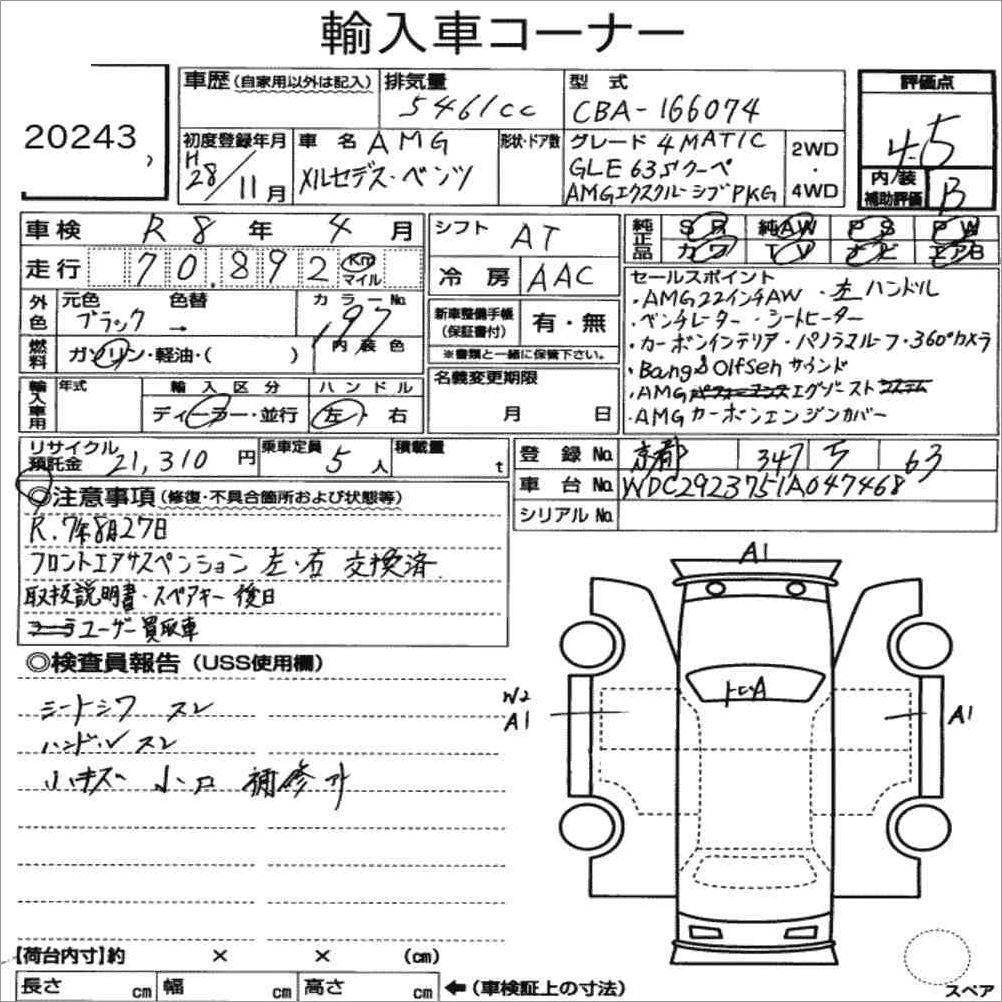 輸入車コーナー
20243
車歴(自家用以外は記入)
排気量
5461cc
型式
CBA-166074
評価点
4.5
内/装
補助評価
B
初度登録年月
H
28/11月
車名 AMG
メルセデス・ベンツ
形状・ドア数
グレード 4MATIC
GLE 63Sクーペ
AMGエクスクルーシブPKG
2WD
・
4WD
車検 R 8 年 4 月
走行 70.892 Km
マイル
外色
元色
ブラック
色替
→
カラーNo.
197
内装色
燃料
ガソリン・軽油・( )
シフト AT
冷房 AAC
新車整備手帳
(保証書付)
有・無
※書類と一緒に保管下さい。
名義変更期限
月 日
純正品
SR 純AW PS PW
カワ TV ナビ エアB
セールスポイント
・AMG22インチAW ・左ハンドル
・ベンチレーター・シートヒーター
・カーボンインテリア・パノラマルーフ・360°カメラ
・Bang&Olfsenサウンド
・AMGパフォーマンスエグゾーストシステム
・AMGカーボンエンジンカバー
輸入車用
年式
輸入区分
ディーラー・並行
ハンドル
左・右
リサイクル
預託金 21,310 円
乗車定員
5人
積載量
t
登録No. 京都 347 す 63
車台No. WDC2923751A047468
シリアルNo.
◎注意事項(修復・不具合箇所および状態等)
R.7年8月27日
フロントエアサスペンション 左・右 交換済
取扱説明書・スペアキー 後日
ユーザー買取車
◎検査員報告(USS使用欄)
シートシワ スレ
ハンドル スレ
小キズ 小凹 補修才
A1
トビA
W2
A1
A1
【荷台内寸】約 × × (cm)
長さ cm 幅 cm 高さ cm ←(車検証上の寸法)
スペア